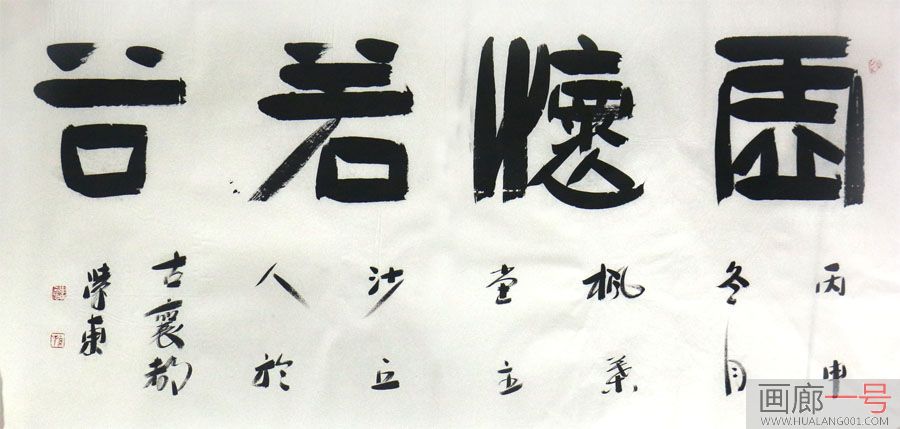 虛懷若谷
丙申
冬月
楓葉
堂主
沙丘
人於
古襄都
東
画廊一号
WWW.HUALANG001.COM